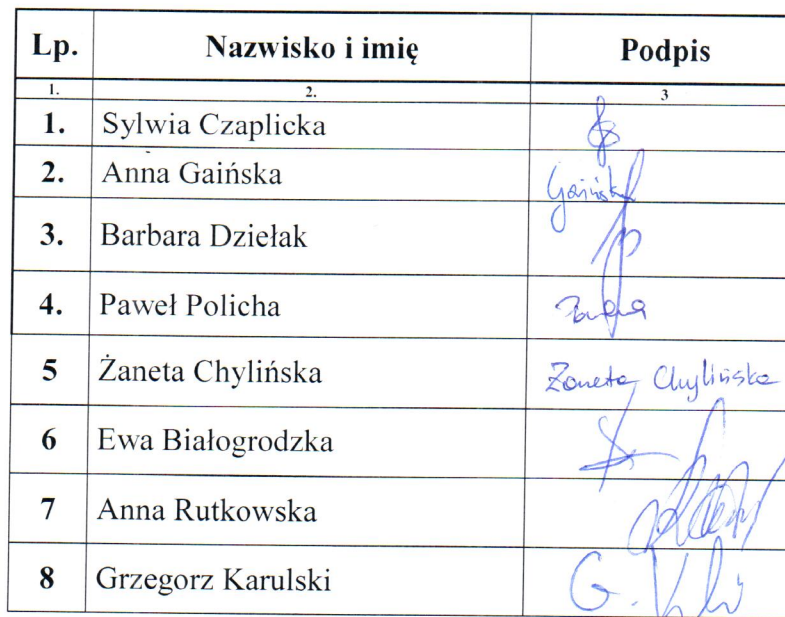 Lp. Nazwisko i imię Podpis
1. 2. 3
1. Sylwia Czaplicka
2. Anna Gaińska Gaińska
3. Barbara Dziełak
4. Paweł Policha
5 Żaneta Chylińska Żaneta Chylińska
6 Ewa Białogrodzka
7 Anna Rutkowska
8 Grzegorz Karulski G.